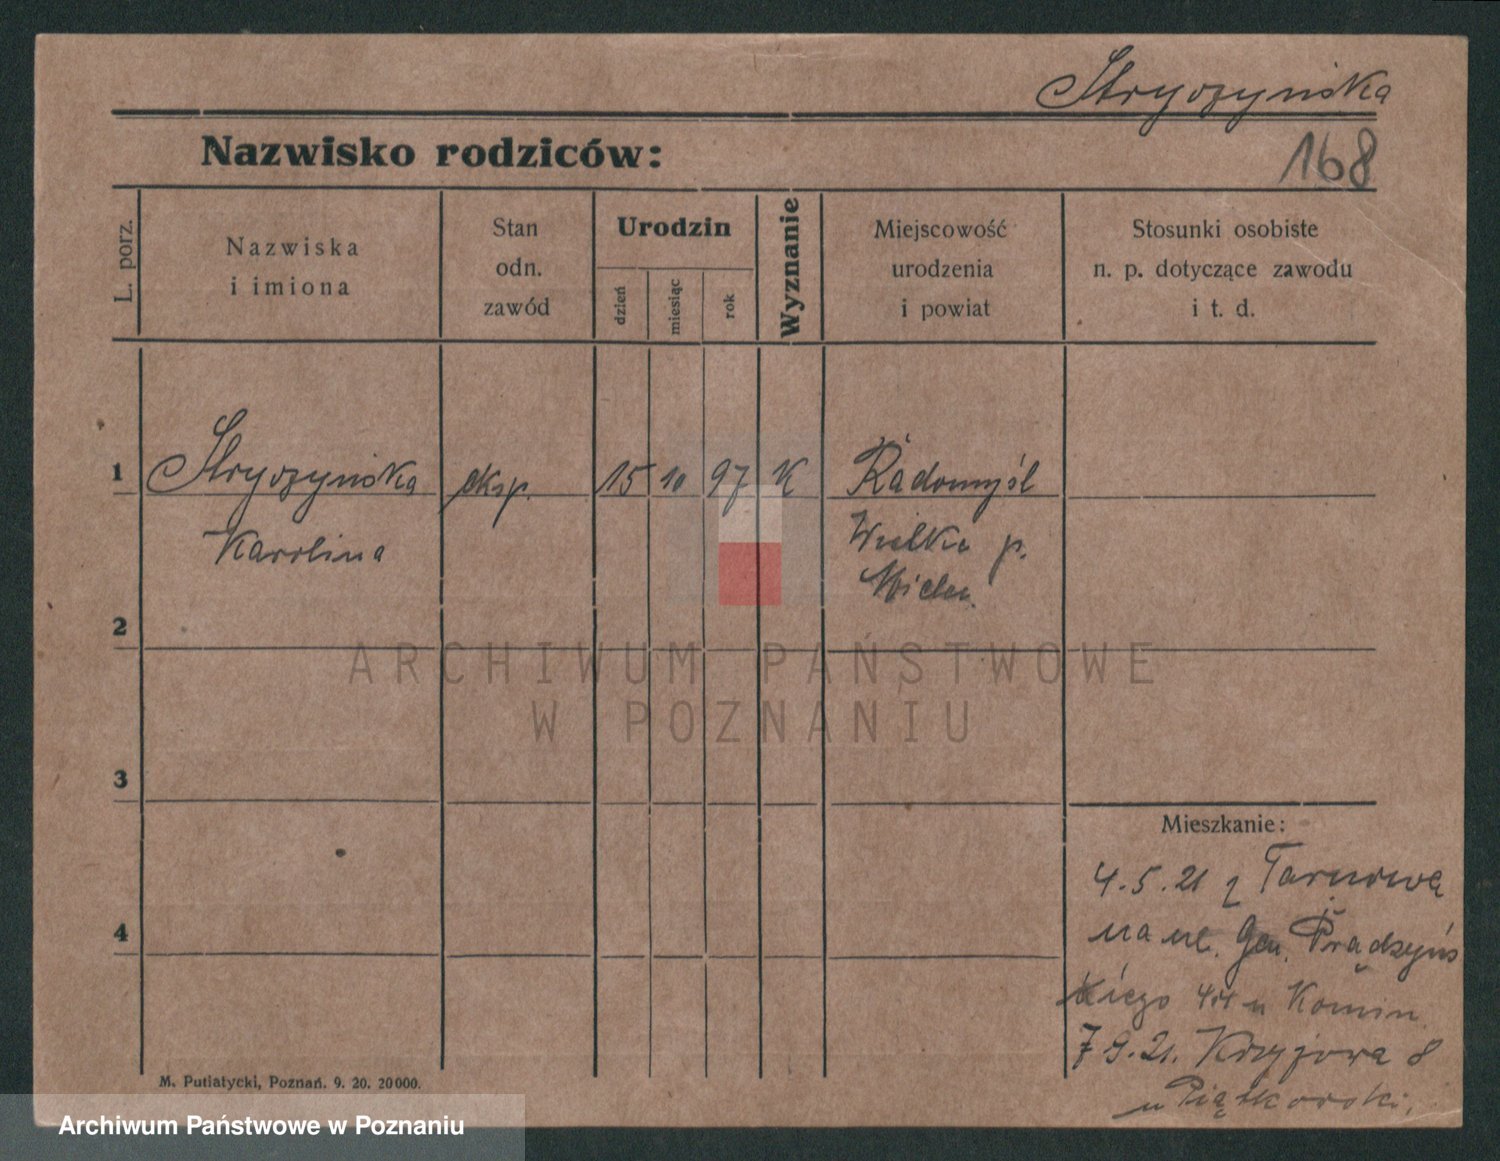 Stryczyńska
168
Nazwisko rodziców:
L. porz.
Nazwiska
i imiona
Stan
odn.
zawód
Urodzin
dzień
miesiąc
rok
Wyznanie
Miejscowość
urodzenia
i powiat
Stosunki osobiste
n. p. dotyczące zawodu
i t. d.
1 Stryczyńska eksp. 15 10 97 K Radomyśl
Karolina Wielki p.
Mielec
2
3
4
ARCHIWUM PAŃSTWOWE
W POZNANIU
Mieszkanie:
4.5.21 z Tarnowa
na ul. Gen. Prądzyńs
kiego 44 u Komin
7 9.21. Krzyżowa 8
u Piątkowski.
M. Putiatycki, Poznań. 9. 20. 20000.
Archiwum Państwowe w Poznaniu